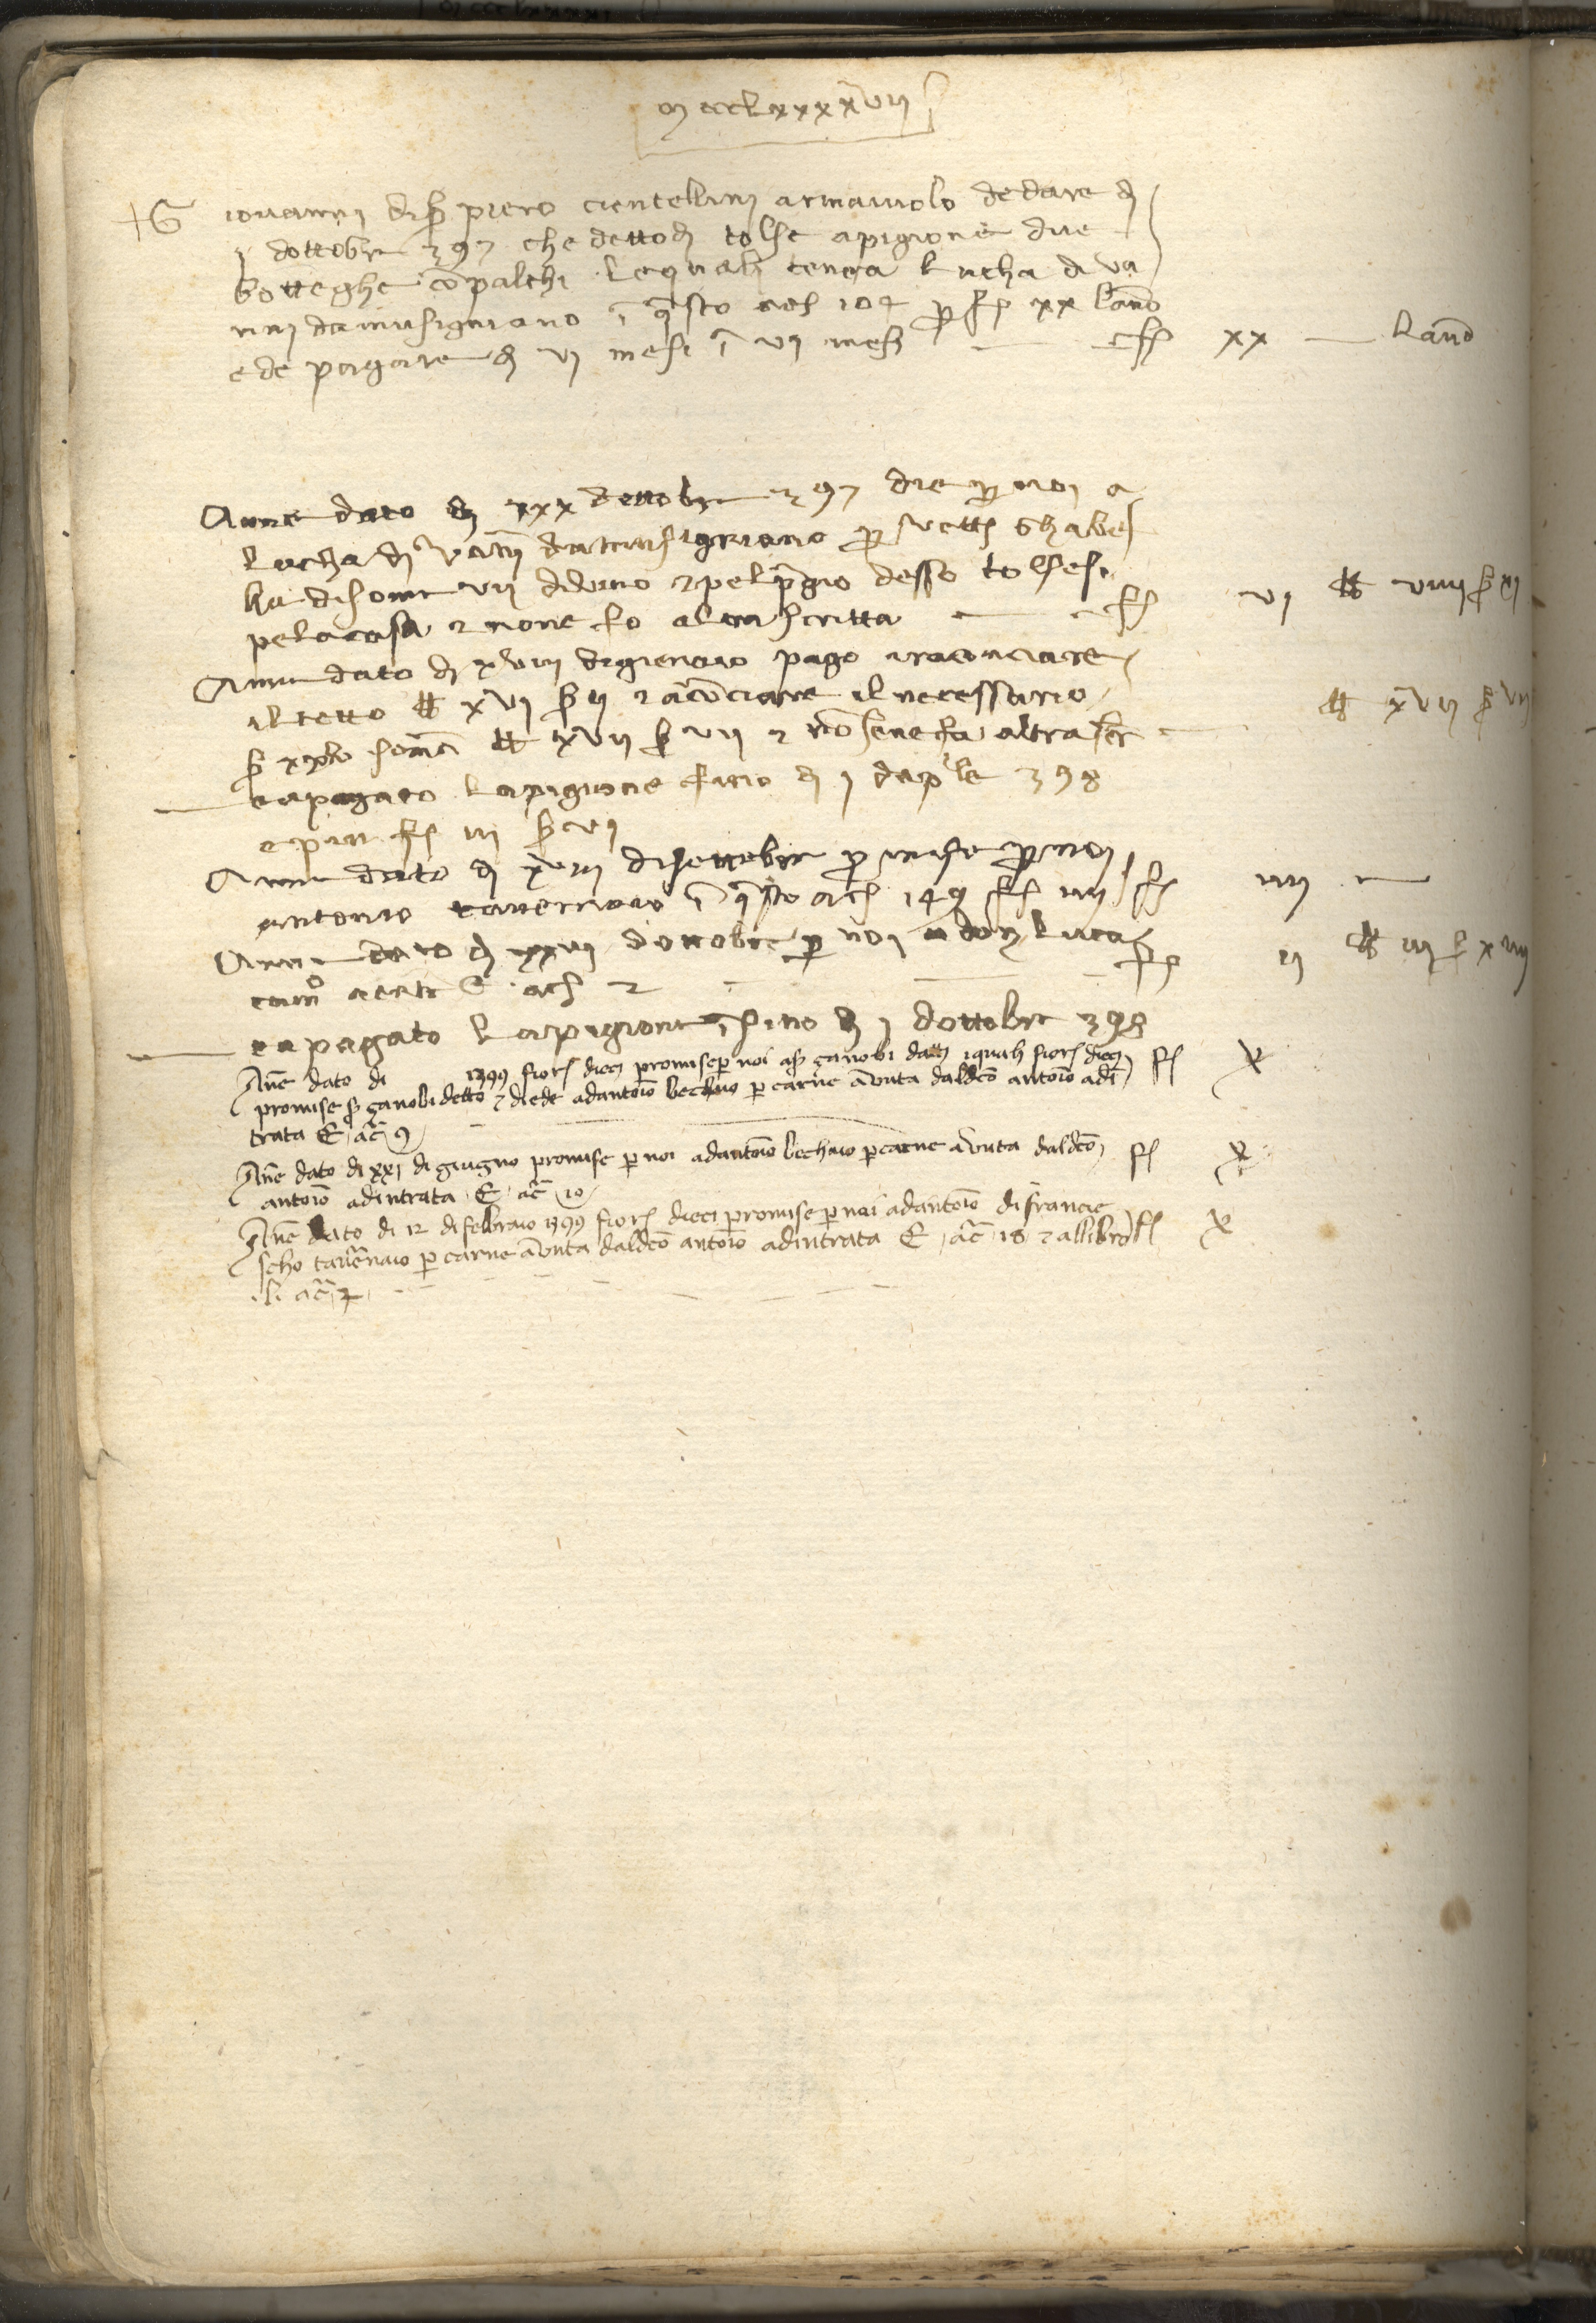 MCCCLXXXXVII
Giovanni di ser piero cientellini armaiuolo de dare dì
j dottobre 397 che detto dì tolse a pigione due
botteghe cō palchi le quali tenea Lucha di va
nni da musignano ī q̄sto a cͬ 104 p̱ fͥ xx lāno
e de pagare dì vj mesi ī vj mesi — fͥ xx — lāno
Anne dato dì xxx dottobre 397 die p̱ noi a
Lucha di vāni da musignano p̱ ghabel
la di some vij di vino e pel p̄gio desso tolsesi
pela casa e none fo altra scritta — fͥ vj ll viiij s xj
Anne dato dì xviij di gienaio pago a raconciare
il tetto ll xvj s ij e acōciare il necessario
s xv somā ll xvij s vij e nō sene fa altra — ll xvij s vij
— ea pagato la pigione fino dì j daprile 398
e piu fͥ iij s vj
Anne dato dì xviij di settebre p̱mise p̱ noi
antonio tavernaio ī q̄sto a cͬ 149 fͥ iiij fͥ iiij —
Anne dato dì xxvj dottobre p̱ noi a don Luca
camͦ a entrͣ G a cͬ 2 — fͥ ij ll iij s xiiij
— ea pagato la pigione īsino dì j dottobre 398
Āne dato di 1399 fiorͥ dieci promise p̱ noi a s çanobi iquali fiorͥ dieci fͥ x
promise s çanobi detto e diede ad antoīo bechaio p̱ carne avuta daldc̄o antoīo ad ī
trata E a c̄ 9
Āne dato di xxj di giugno promise p̱ noi ad antoīo bechaio p̱ carne avuta daldc̄o fͥ x
antoīo ad intrata E a c̄ 10
Āne dato di 12 di febraio 1399 fiorͥ dieci promise p̱ noi ad antoīo di francie
scho tav̄naio p̱ carne avuta daldc̄o antoīo ad intrata E a c̄ 18 e allibro fͥ x
a c̄ 2